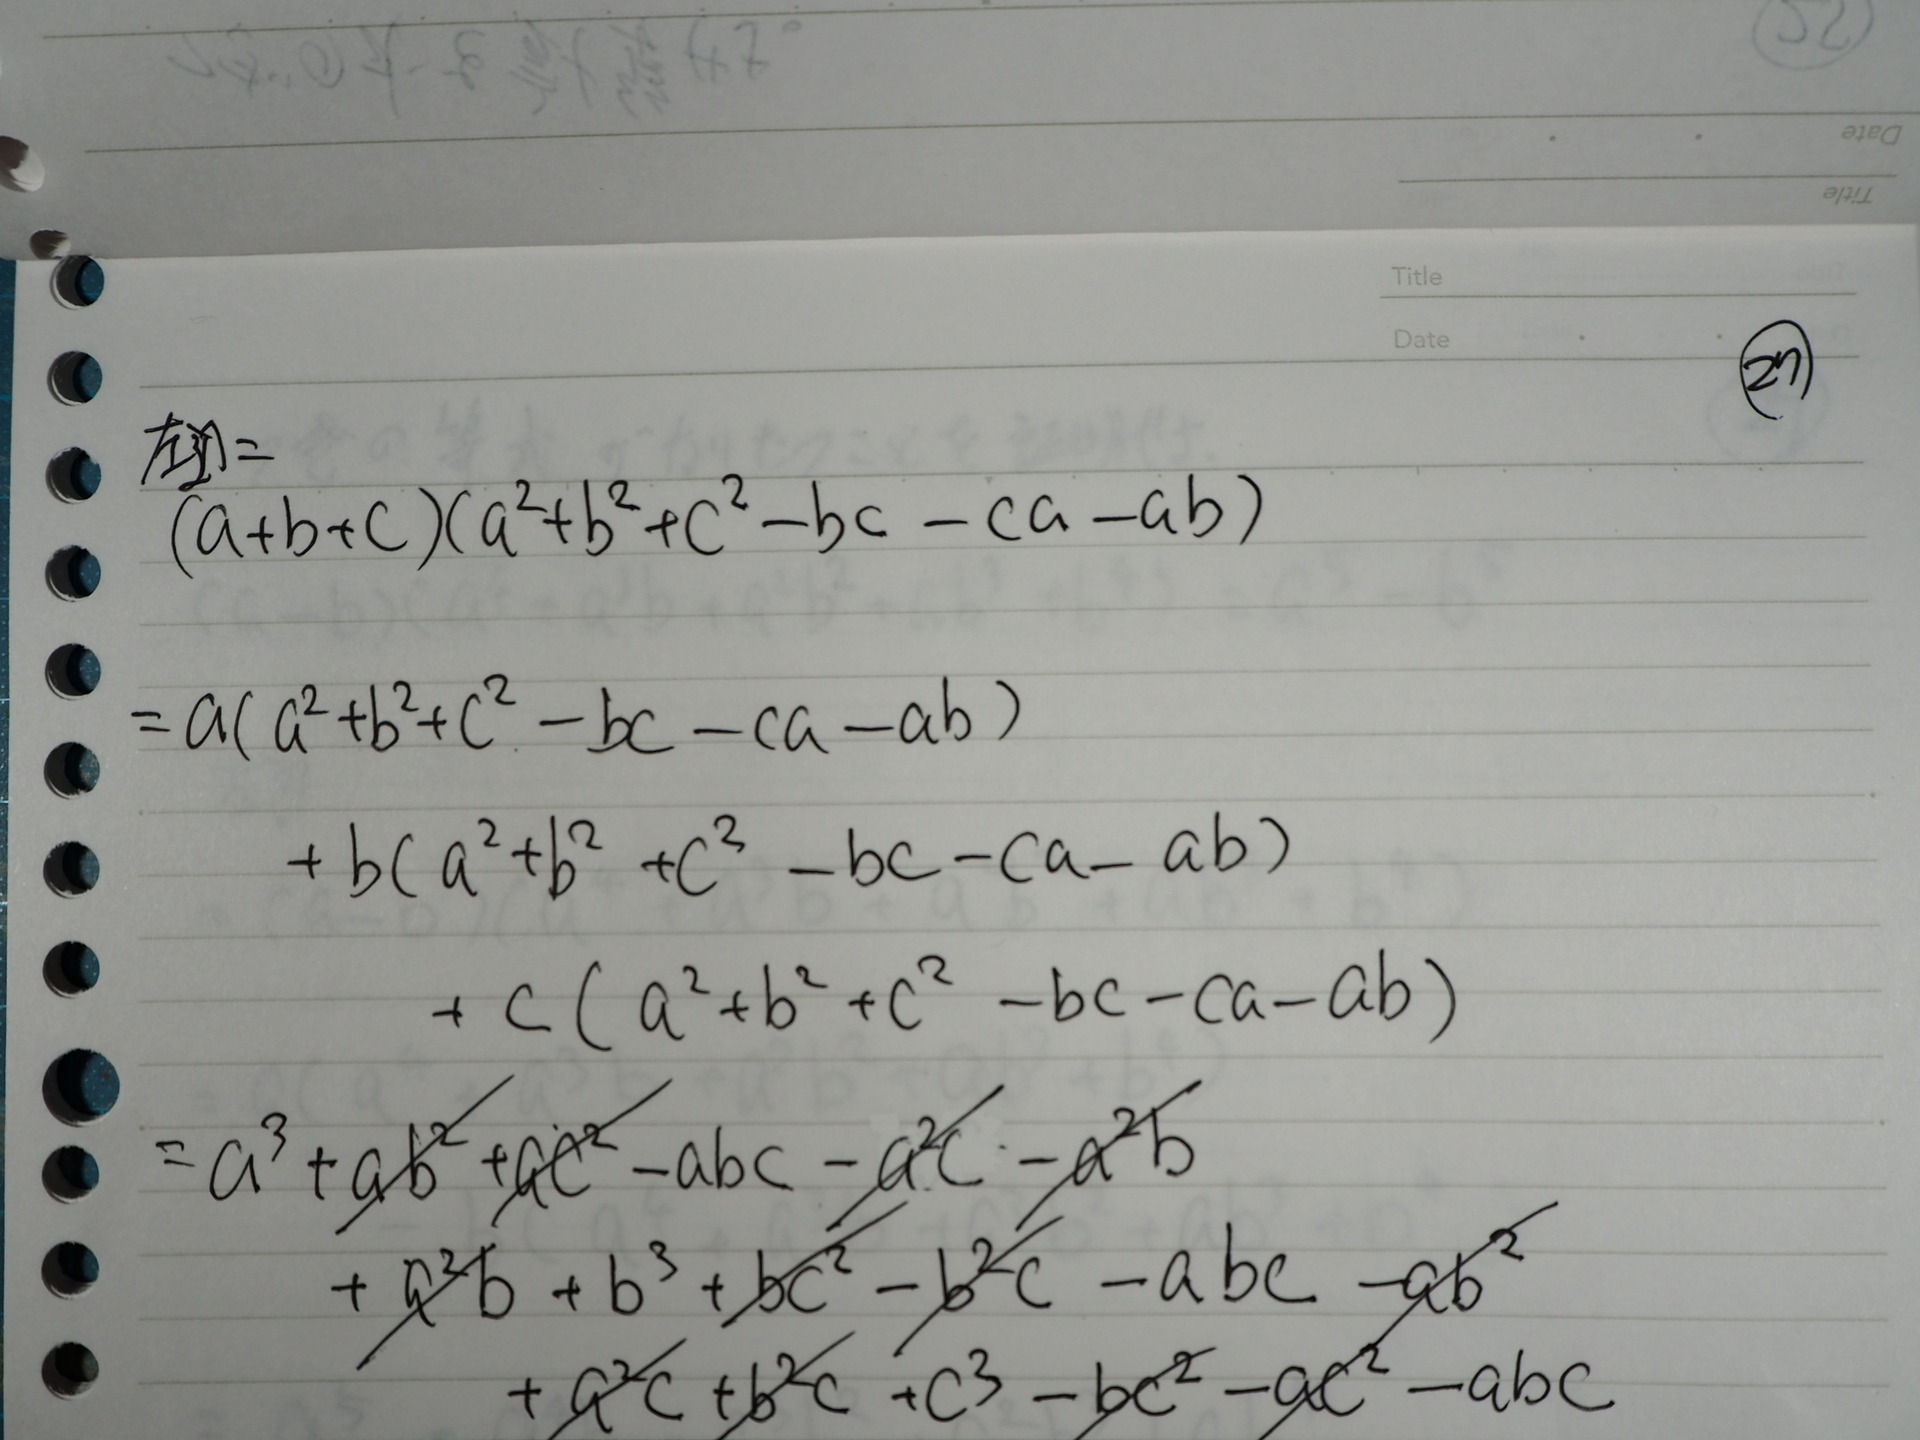 Date
Title
Title
Date
27
左辺=
(a+b+c)(a²+b²+c²-bc-ca-ab)
=a(a²+b²+c²-bc-ca-ab)
+b(a²+b²+c²-bc-ca-ab)
+c(a²+b²+c²-bc-ca-ab)
=a³+ab²+ac²-abc-a²c-a²b
+a²b+b³+bc²-b²c-abc-ab²
+a²c+b²c+c³-bc²-ac²-abc